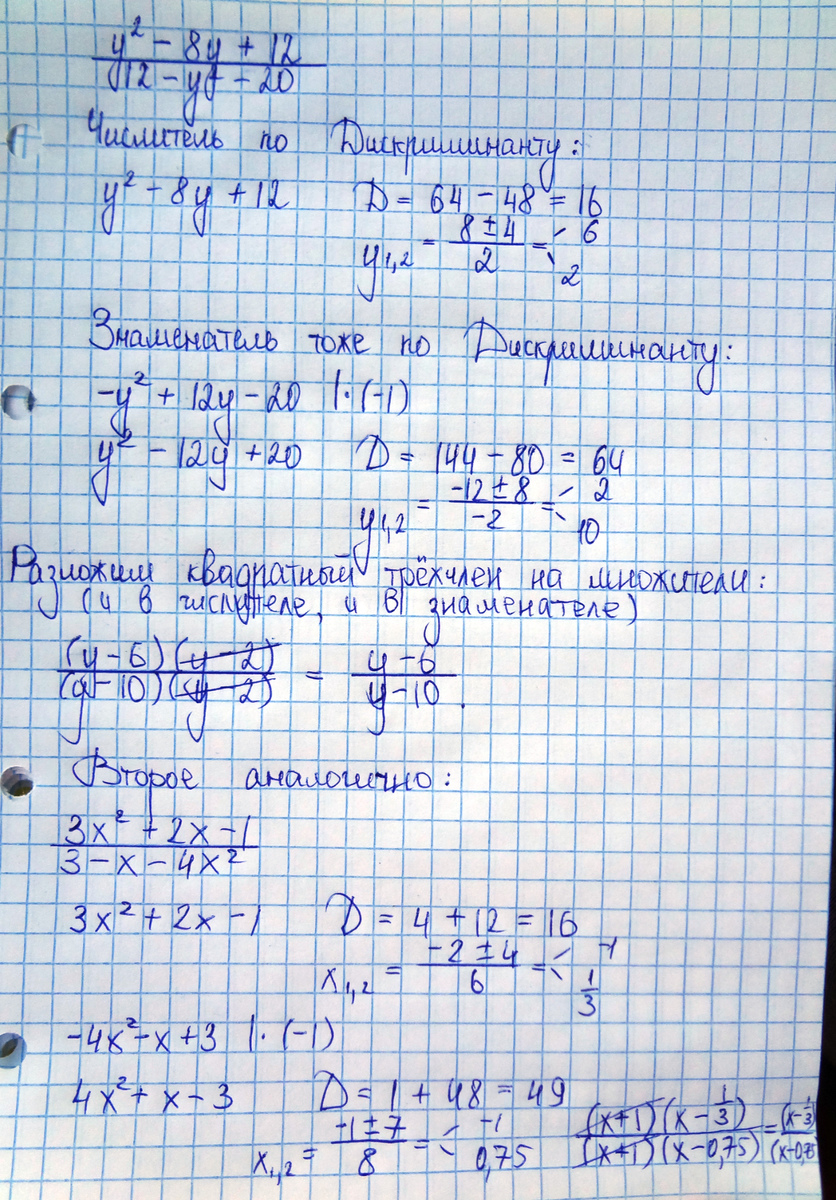 y² - 8y + 12
12 - y² - 20
Числитель по Дискриминанту:
y² - 8y + 12 D = 64 - 48 = 16
y1,2 = (8 ± 4)/2 = 6 2
Знаменатель тоже по Дискриминанту:
-y² + 12y - 20 |·(-1)
y² - 12y + 20 D = 144 - 80 = 64
y1,2 = (-12 ± 8)/-2 = 2 10
Разложим квадратный трёхчлен на множители:
(и в числителе, и в знаменателе)
(y - 6)(y - 2)/(y - 10)(y - 2) = y - 6/y - 10.
Второе аналогично:
3x² + 2x - 1
3 - x - 4x²
3x² + 2x - 1 D = 4 + 12 = 16
x1,2 = (-2 ± 4)/6 = -1 1/3
-4x² - x + 3 |·(-1)
4x² + x - 3 D = 1 + 48 = 49
x1,2 = (-1 ± 7)/8 = -1 0,75 (x+1)(x - 1/3)/(x+1)(x - 0,75) = (x - 1/3)/(x - 0,75